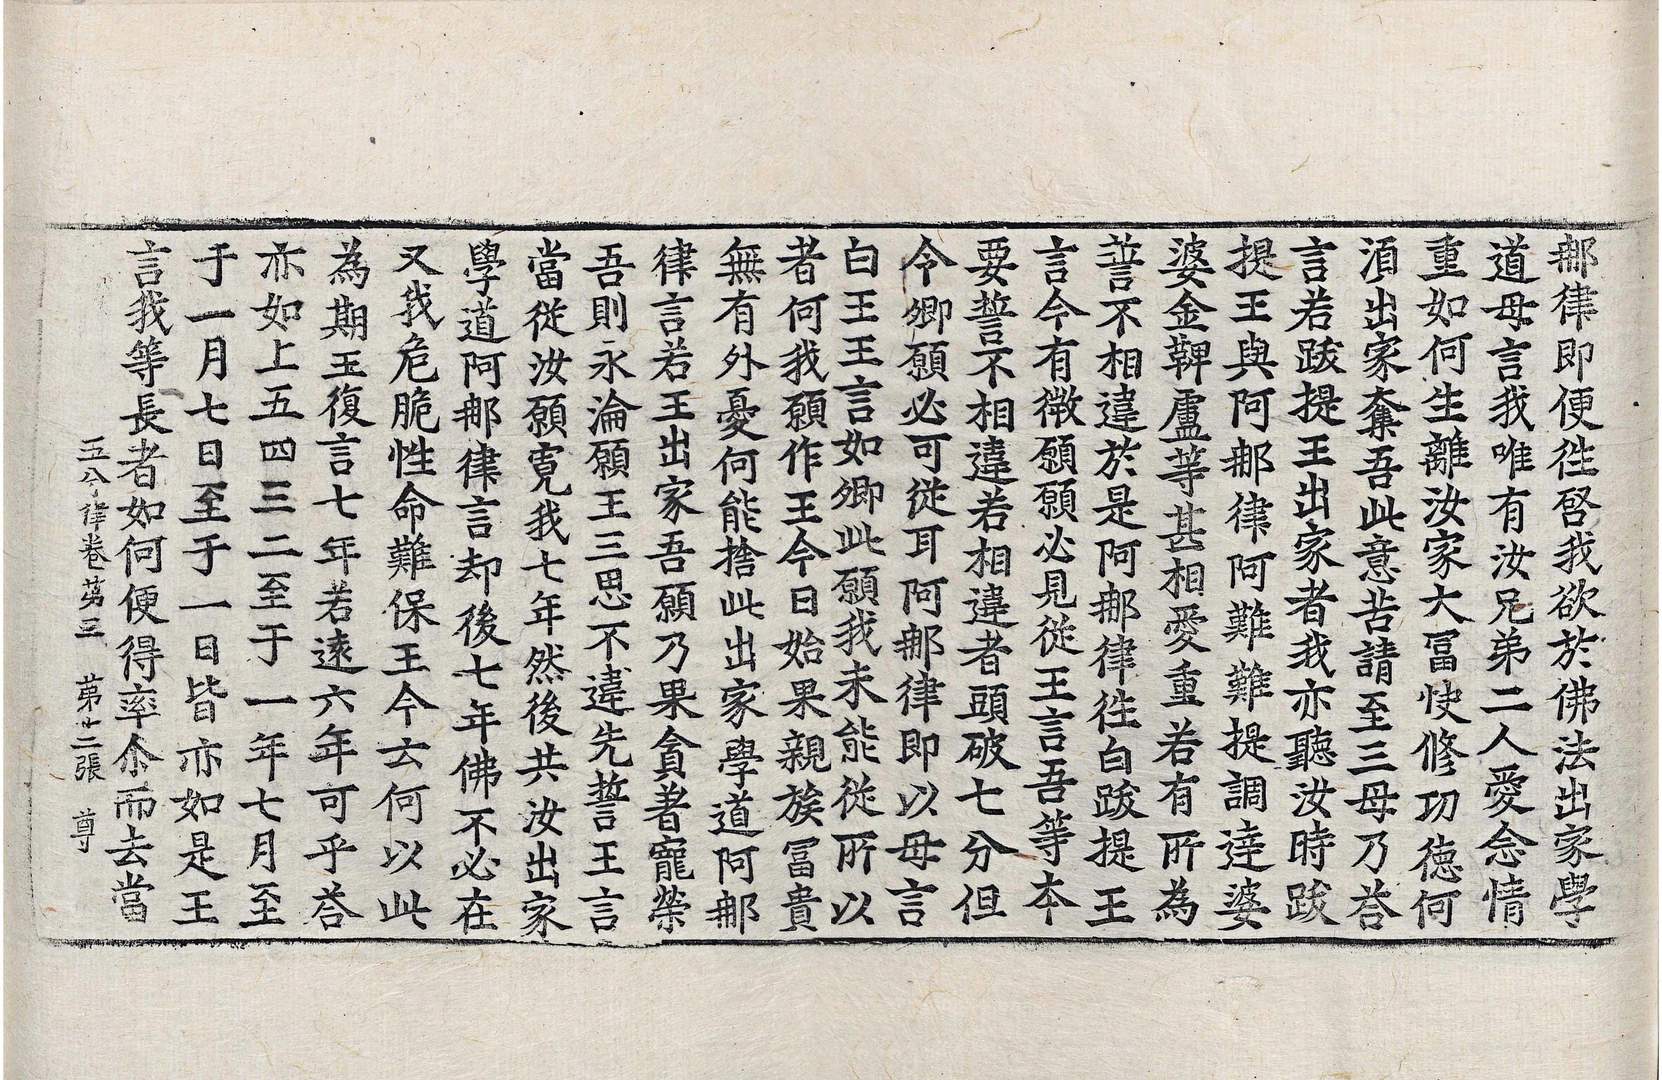 那律即便徃啓我欲於佛法出家學
道母言我唯有汝兄弟二人愛念情
重如何生離汝家大冨快修功德何
湏出家奪吾此意苦請至三母乃荅
言若跋提王出家者我亦聽汝時跋
提王與阿那律阿難難提調達婆
婆金鞞盧等甚相愛重若有所為
誓不相違於是阿那律徃白跋提王
言今有微願願必見從王言吾等本
要誓不相違若相違者頭破七分但
令卿願必可從耳阿那律即以母言
白王王言如卿此願我未能從所以
者何我願作王今日始果親族冨貴
無有外憂何能捨此出家學道阿那
律言若王出家吾願乃果貪著寵榮
吾則永淪願王三思不違先誓王言
當從汝願寬我七年然後共汝出家
學道阿那律言却後七年佛不必在
又我危脆性命難保王今云何以此
為期王復言七年若遠六年可乎荅
亦如上五四三二至于一年七月至
于一月七日至于一日皆亦如是王
言我等長者如何便得率尒而去當
五分律卷第三　第廿二張　尊